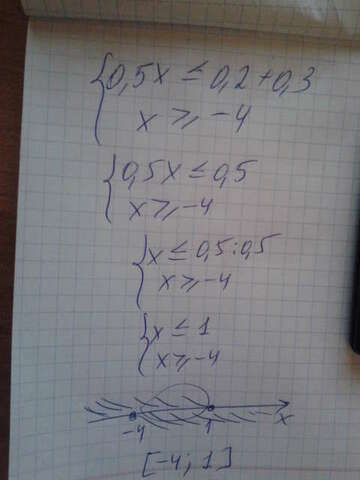 {0,5x ≤ 0,2+0,3
x ≥ -4
{0,5x ≤ 0,5
x ≥ -4
{x ≤ 0,5:0,5
x ≥ -4
{x ≤ 1
x ≥ -4
-4 1 x
[-4; 1]